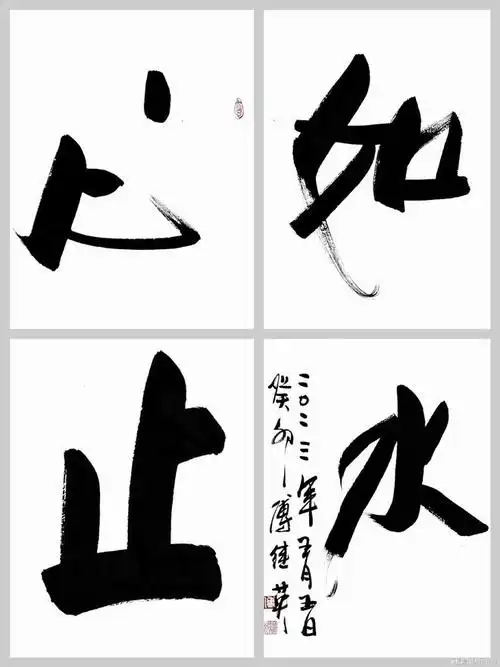 心
如
止
水
二〇二三年五月五日
癸卯傅继英